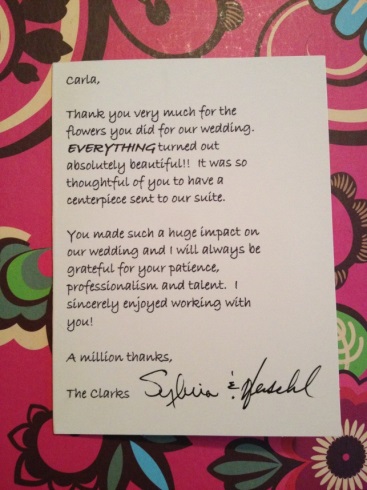 Carla,
Thank you very much for the
flowers you did for our wedding.
EVERYTHING turned out
absolutely beautiful!! It was so
thoughtful of you to have a
centerpiece sent to our suite.
You made such a huge impact on
our wedding and I will always be
grateful for your patience,
professionalism and talent. I
sincerely enjoyed working with
you!
A million thanks,
The Clarks Sylvia &